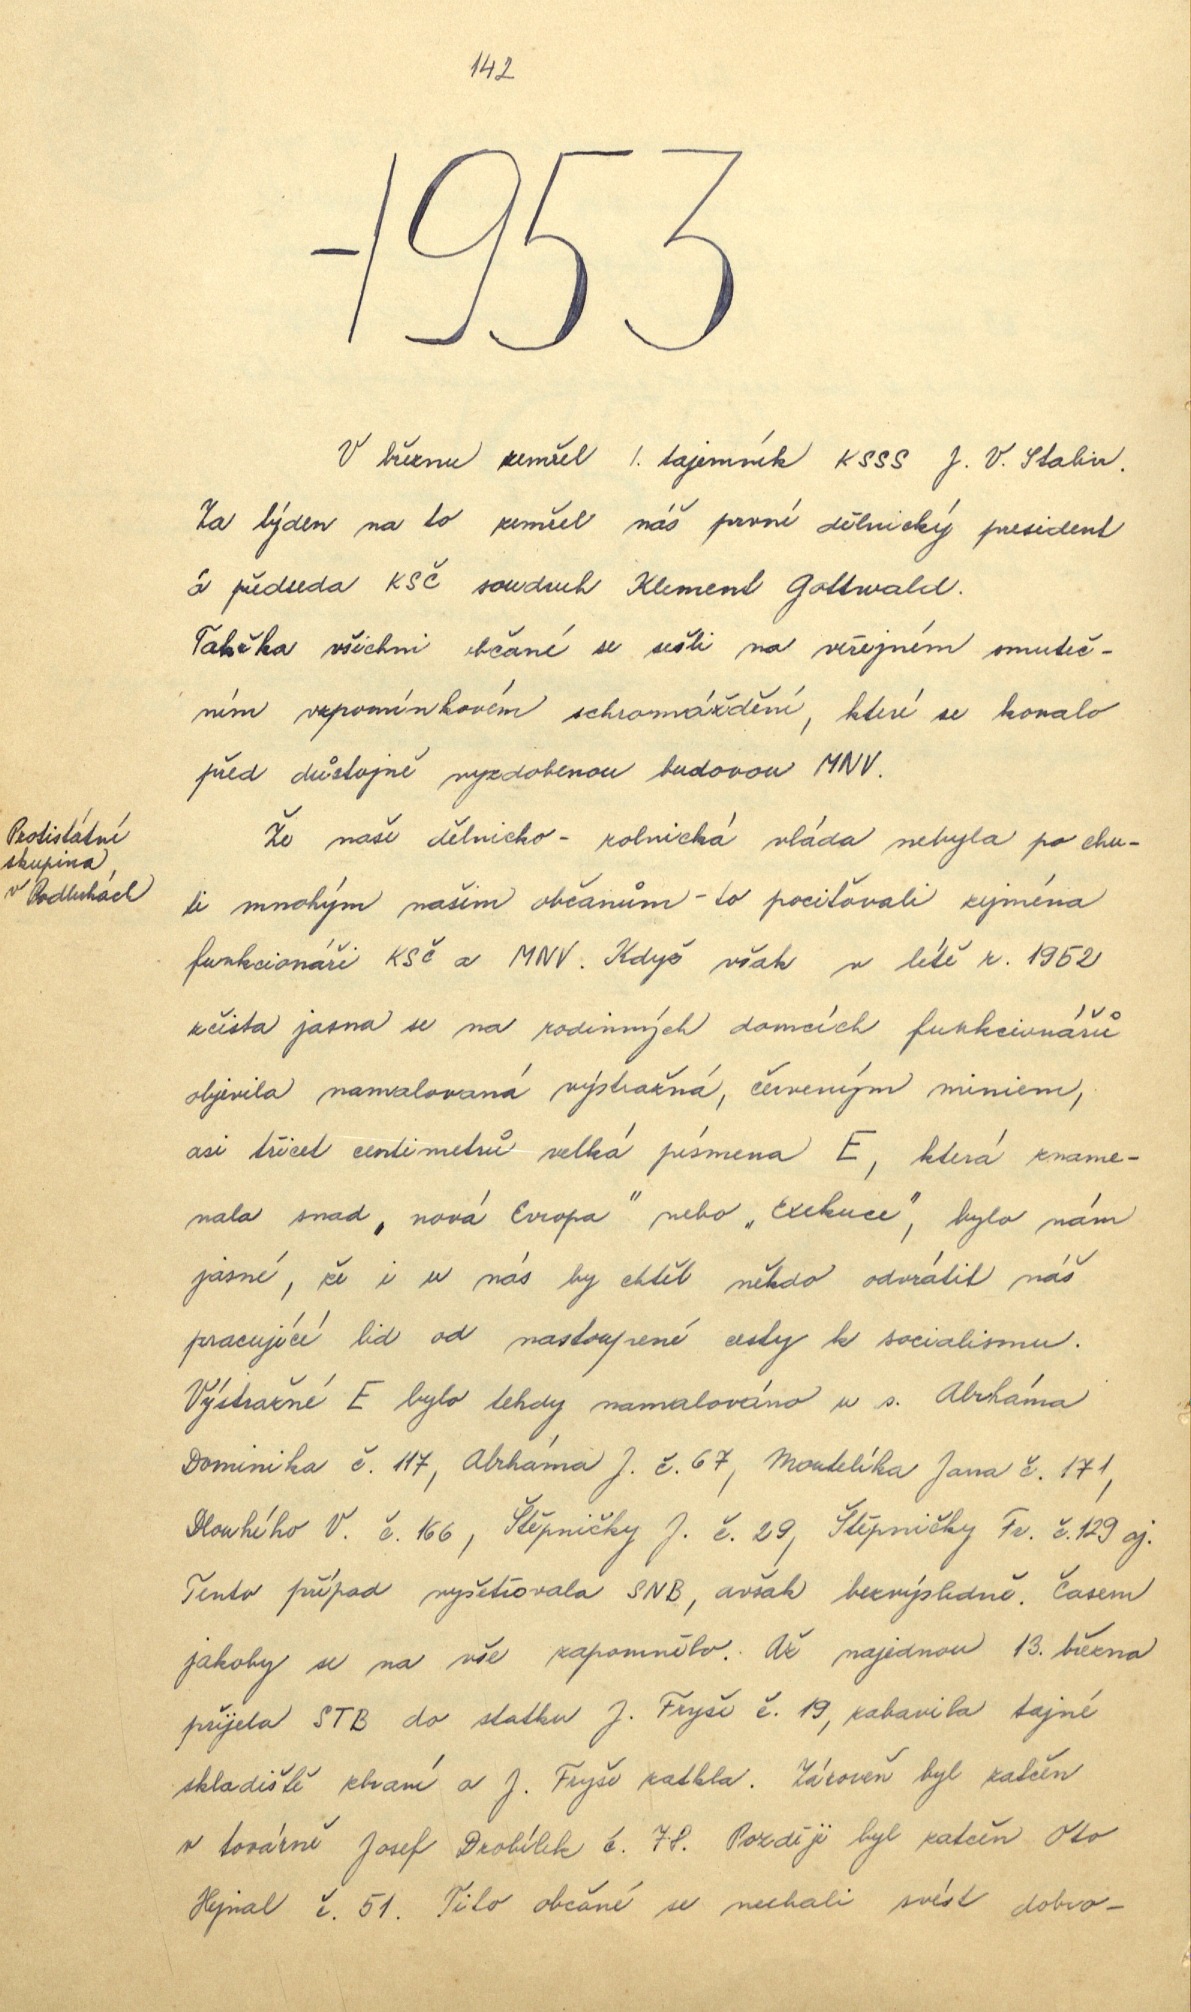 142
1953
V březnu zemřel 1. tajemník KSSS J. V. Stalin.
Za týden na to zemřel náš první dělnický president
a předseda KSČ soudruh Klement Gottwald.
Takřka všichni občané se sešli na veřejném smuteč-
ním vzpomínkovém schromáždění, které se konalo
před důstojně vyzdobenou budovou MNV.
Protistátní
skupina
v Podluhách
Že naše dělnicko - rolnická vláda nebyla po chu-
ti mnohým našim občanům - to pociťovali zejména
funkcionáři KSČ a MNV. Když však v létě r. 1952
zčista jasna se na rodinných domcích funkcionářů
objevila namalovaná výstražná, červeným miniem,
asi třicet centimetrů velká písmena E, která zname-
nala snad „nová Evropa" nebo „Exekuce", bylo nám
jasné, že i u nás by chtěl někdo odvrátit náš
pracující lid od nastoupené cesty k socialismu.
Výstražné E bylo tehdy namalováno u s. Abrháma
Dominika č. 117, Abrháma J. č. 67, Moutelíka Jana č. 171,
Dlouhého V. č. 166, Štěpničky J. č. 29, Štěpničky Fr. č. 129 aj.
Tento případ vyšetřovala SNB, avšak bezvýsledně. Časem
jakoby se na vše zapomnělo. Až najednou 13. března
přijela STB do statku J. Fryše č. 19, zabavila tajné
skladiště zbraní a J. Fryše zatkla. Zároveň byl zatčen
v továrně Josef Drobílek č. 78. Později byl zatčen Oto
Hejnal č. 51. Tito občané se nechali svést dobro-